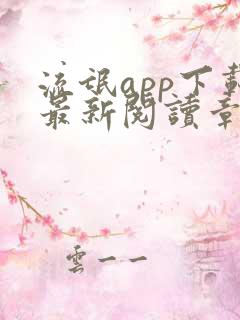 流氓app下載
最新閱讀章
雲一一